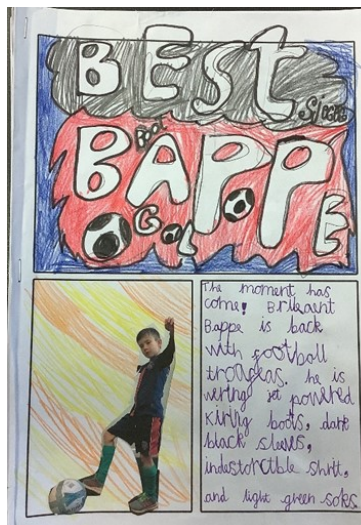 BEst
BAPPE
Gol
The moment has
come! Brlleant
Bappe is back
with football
trougeas. he is
wering jet powered
kiring boots, dark
black sleeves,
indestorctble shrit,
and light green soks